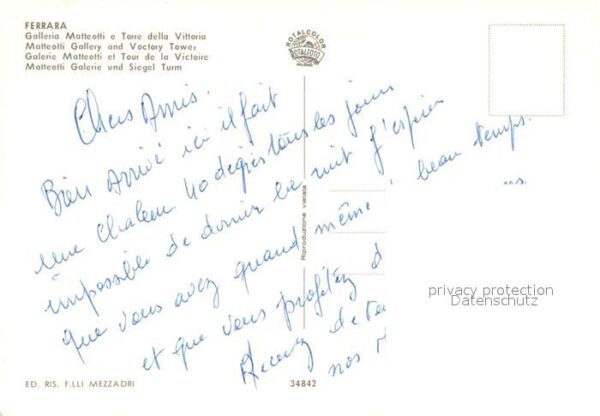 FERRARA
Galleria Matteotti e Torre della Vittoria
Matteotti Gallery and Voctory Tower
Galerie Matteotti et Tour de la Victoire
Matteotti Galerie und Siegel Turm
ROTALCOLOR
ROTALFOTO
MILANO
Chers Amis.
Bien Arrivé ici il fait
une chaleur 40 degrés tous les jours
impossible de dormir la nuit j'espère
que vous avez quand même beau temps.
et que vous profitez d
Recevez de
nos
Riproduzione vietata
privacy protection
Datenschutz
ED. RIS. F.LLI MEZZADRI
34842